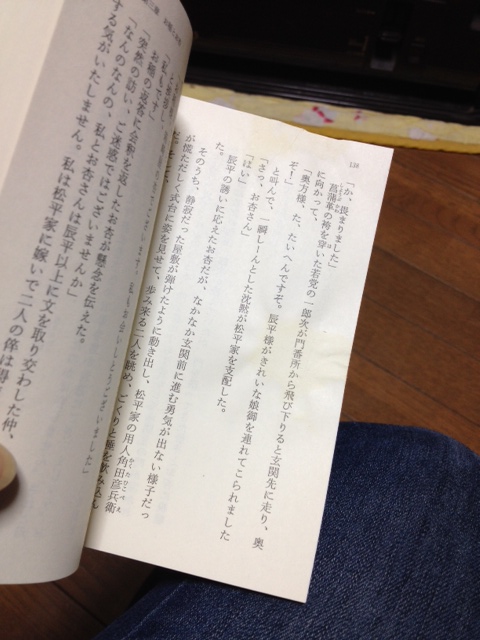 138
「か、畏まりました」
菖蒲革の袴を穿いた若党の一郎次が門番所から飛び下りると玄関先に走り、奥
に向かって、
「奥方様、た、たいへんですぞ。辰平様がきれいな娘御を連れてこられました
ぞ！」
と叫んで、一瞬しーんとした沈黙が松平家を支配した。
「さっ、お杏さん」
「はい」
辰平の誘いに応えたお杏が、なかなか玄関前に進む勇気が出ない様子だっ
た。
そのうち、静寂だった屋敷が弾けたように動き出し、松平家の用人角田彦兵衛
が慌ただしく式台に姿を見せて、歩み来る二人を眺め、ごくりと唾を飲み
「私もです」
お婿の返答に会釈を返したお杏が懸念を伝えた。
「突然の訪い、ご迷惑ではございませんか」
「なんのなんの、私とお杏さんは辰平以上に文を取り交わした仲、
する気がいたしません。私は松平家に嫁いで二人の倅は得